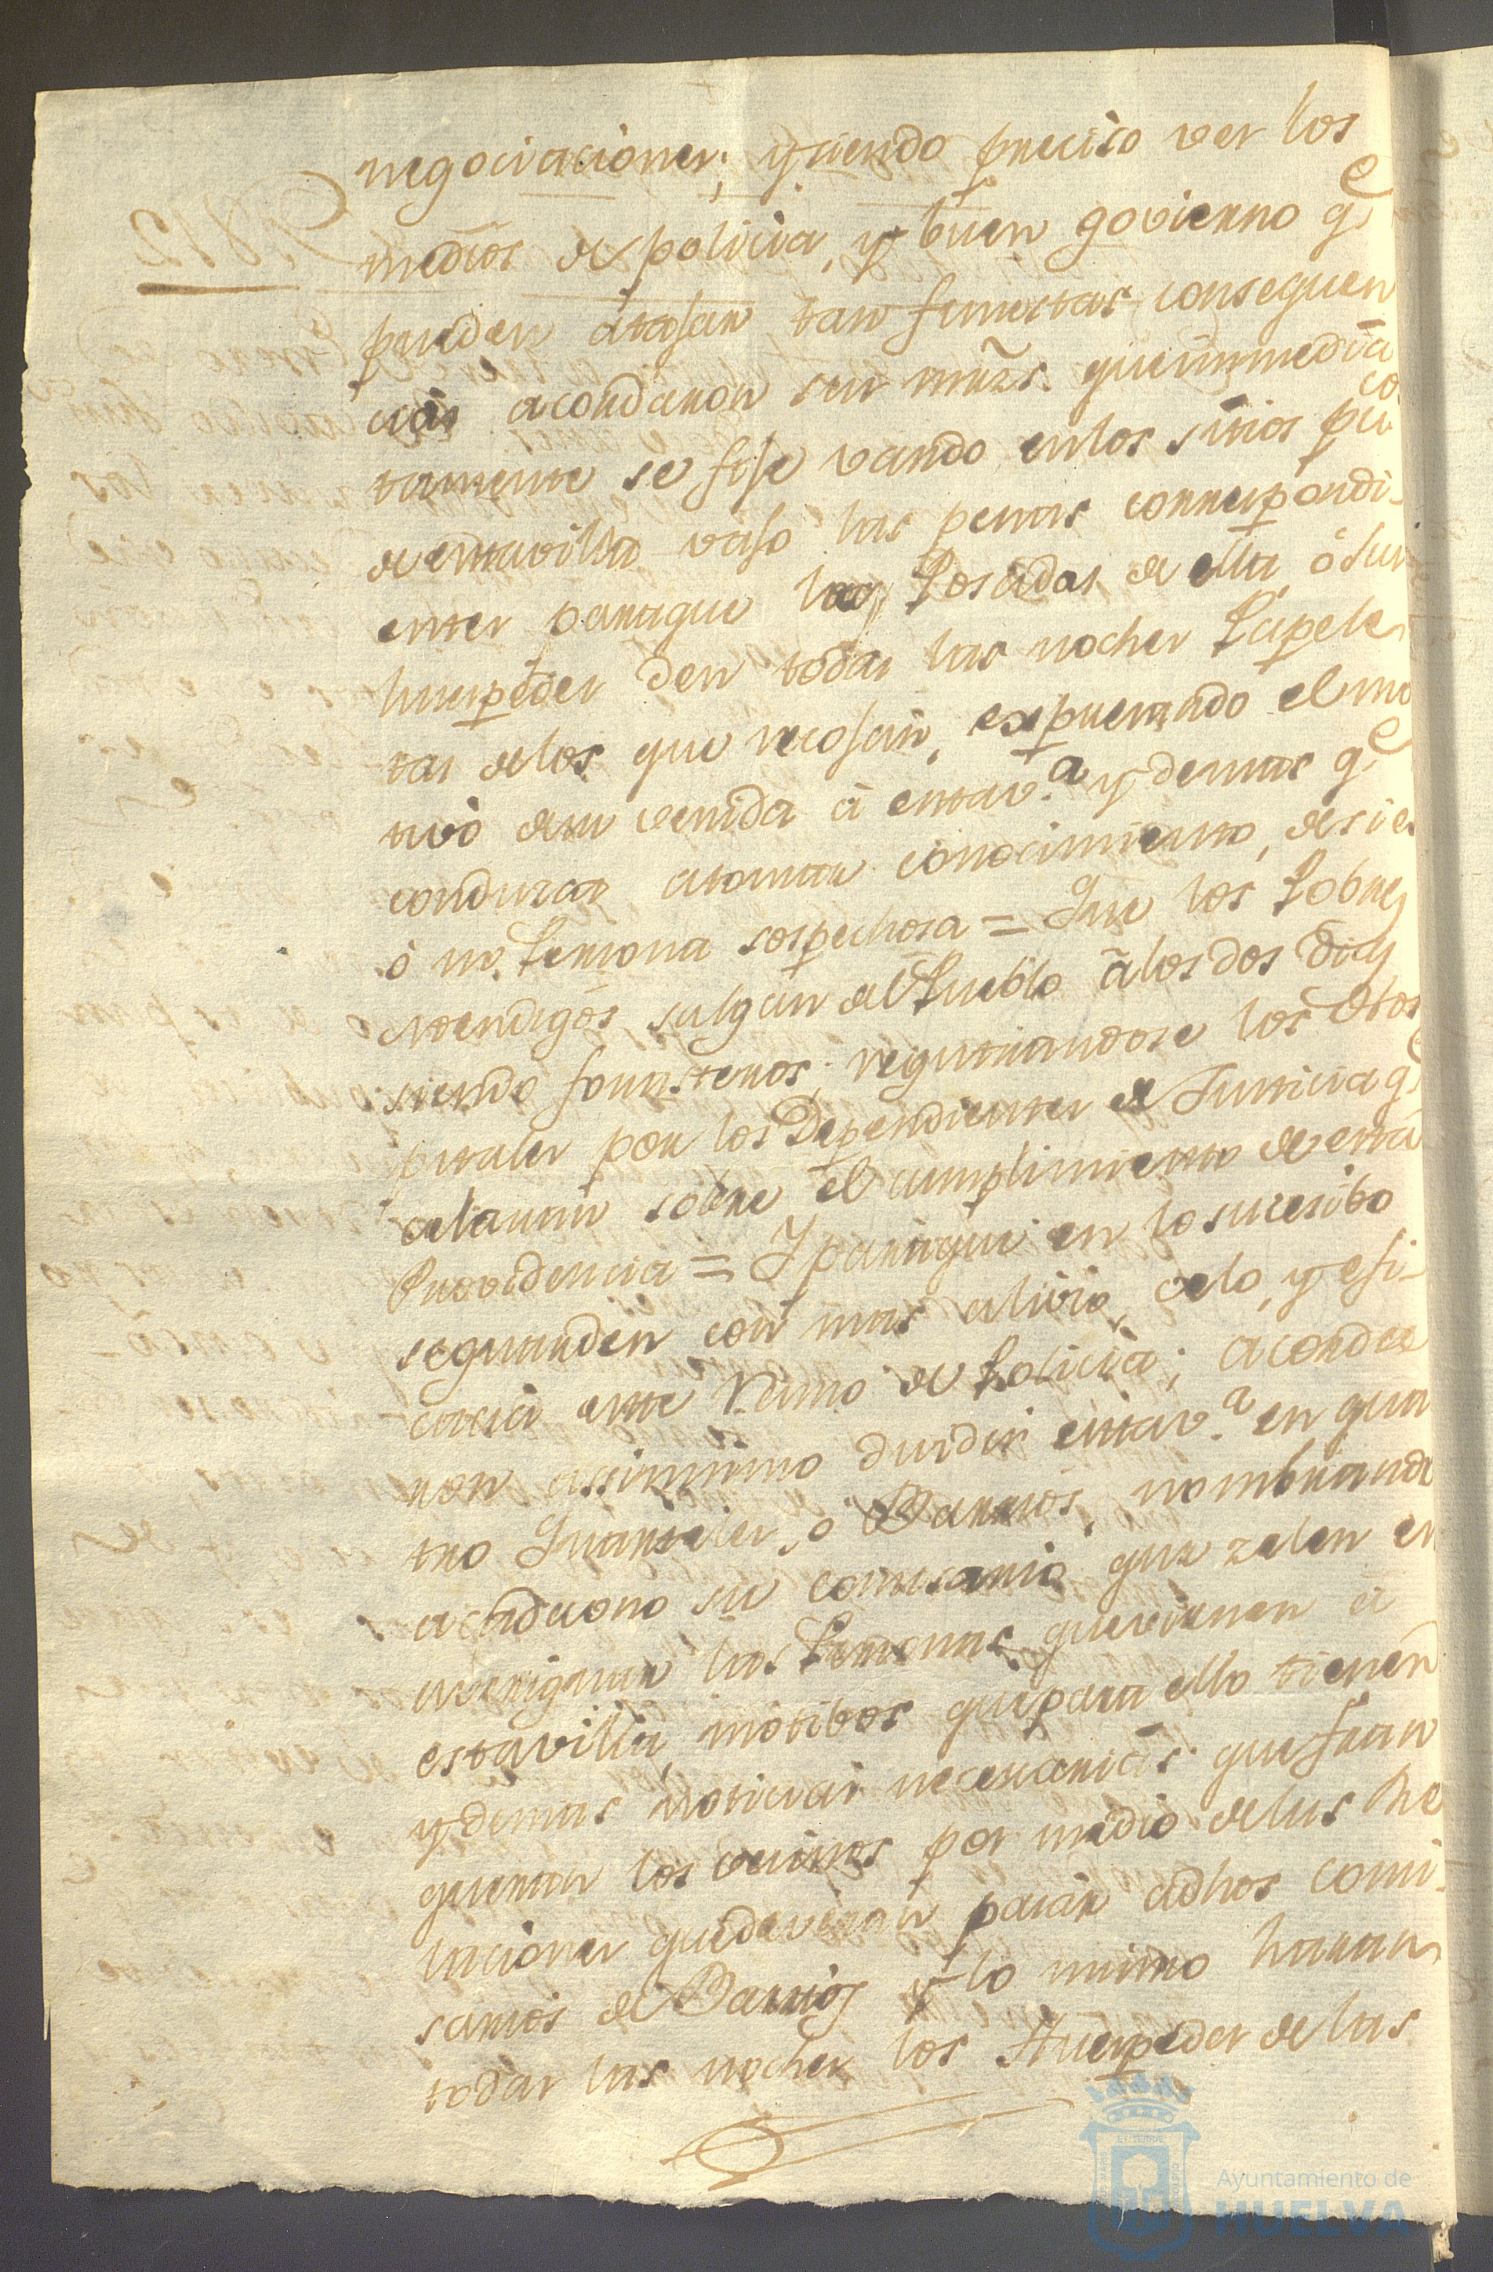 negociaciones; y siendo preciso ver los
medios de policia, y buen govierno qe
pueden atajar tan funestas consequen
cias acordaron sus mrzs. que inmedia
tamente se fije vando en los sitios pcos
de esta villa vajo las penas correspondi-
entes para que las Posadas de ella, ó sus
huespedes den todas las noches Papele
tas de los que recojan, expresando el mo
tivo de su venida á esta va. y demas qe
conduzcan atomar conocimiento, de si es
ó no Persona sospechosa = Que los Pobres
Mendigos salgan del Pueblo álos dos dias
siendo forasteros; registrandose los Hos
pitales por los Dependientes de Justicia qe
celaran sobre el cumplimiento de esta
Providencia = Y para que en lo sucesibo
seguarden con mas alivio, celo, y efi-
cacia este Ramo de Policia; acorda
ron assimismo dividir esta va. en qua
tro Quarteles, o Barrios, nombrando
a cada uno su comisario que zelen en
averiguar las Personas que vienen á
esta villa, motibos que para ello tienen
y demas noticias necesarias que fran
quearan los vecinos por medio de las Re
laciones que deveran pasar adhos Comi-
sarios de Barrios y lo mismo haran
todas las noches los Huespedes de las
Ayuntamiento de
HUELVA